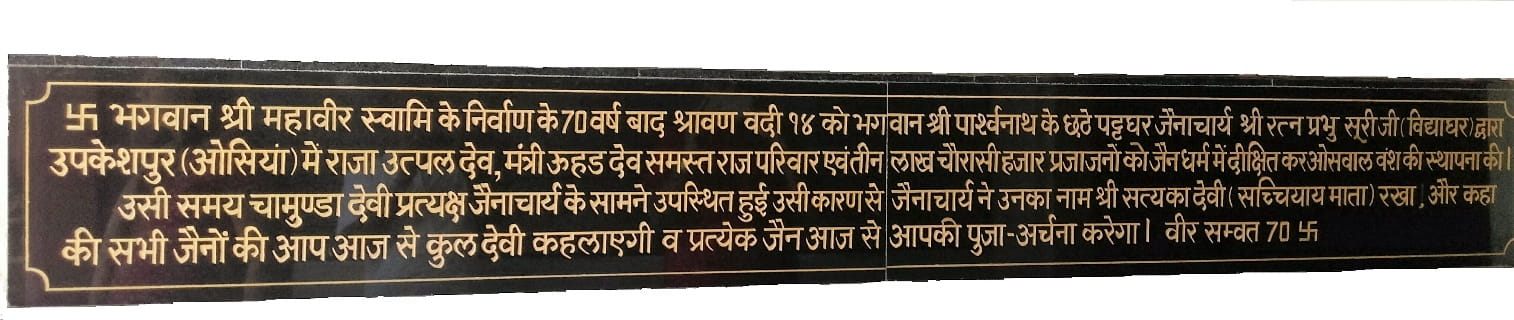 卐 भगवान श्री महावीर स्वामि के निर्वाण के 70 वर्ष बाद श्रावण वदी १४ को भगवान श्री पार्श्वनाथ के छठे पट्टघर जैनाचार्य श्री रत्न प्रभु सूरी जी (विद्याघर) द्वारा
उपकेशपुर (ओसियां) में राजा उत्पल देव, मंत्री ऊहड देव समस्त राज परिवार एवं तीन लाख चौरासी हजार प्रजाजनों को जैन धर्म में दीक्षित कर ओसवाल वंश की स्थापना की।
उसी समय चामुण्डा देवी प्रत्यक्ष जैनाचार्य के सामने उपस्थित हुई उसी कारण से जैनाचार्य ने उनका नाम श्री सत्यका देवी (सच्चियाय माता) रखा, और कहा
की सभी जैनों की आप आज से कुल देवी कहलाएगी व प्रत्येक जैन आज से आपकी पुजा-अर्चना करेगा। वीर सम्वत 70 卐